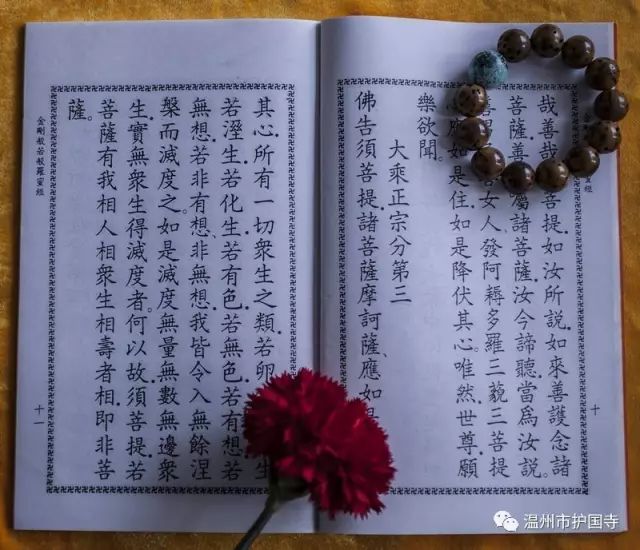 哉善哉菩提。如汝所說。如來善護念諸
菩薩。善囑諸菩薩。汝今諦聽。當爲汝說。
善男女人。發阿耨多羅三藐三菩提
應如是住。如是降伏其心。唯然。世尊。願
樂欲聞。
大乘正宗分第三
佛告須菩提。諸菩薩摩訶薩、應如是
十
其心。所有一切衆生之類。若卵生
若溼生。若化生。若有色。若無色。若有想。若
無想。若非有想、非無想。我皆令入無餘涅
槃而滅度之。如是滅度無量無數無邊衆
生。實無衆生得滅度者。何以故。須菩提。若
菩薩有我相人相衆生相壽者相。即非菩
薩。
金剛般若波羅蜜經
十一
温州市护国寺